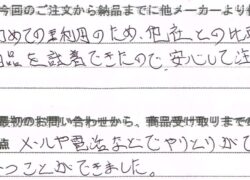 今回のご注文から納品までに他メーカーより
初めての利用のため、他社との比
品を試着できたので、安心して注
最初のお問い合わせから、商品受け取りまでの
点 メールや電話などでやりとりがで
つことができました。